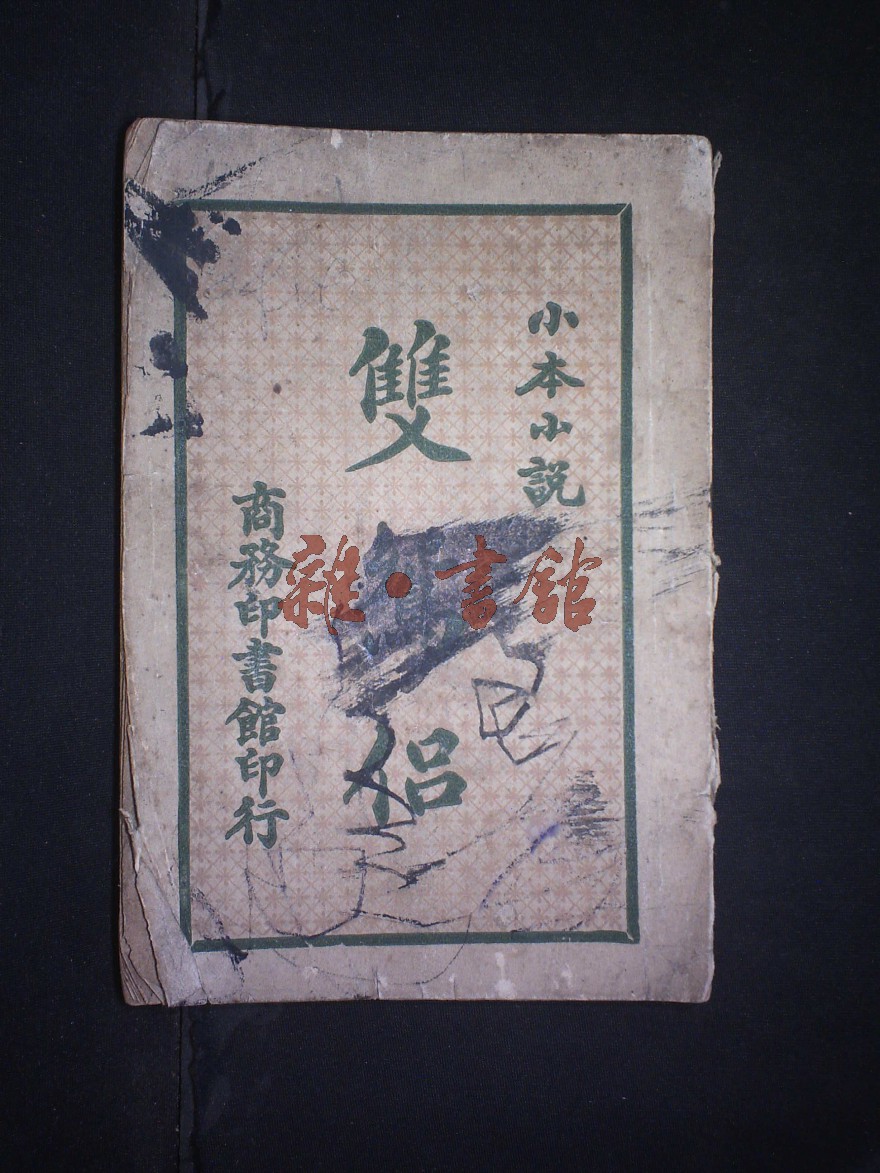 小本小説
雙
侶
商務印書館印行
雜·書館